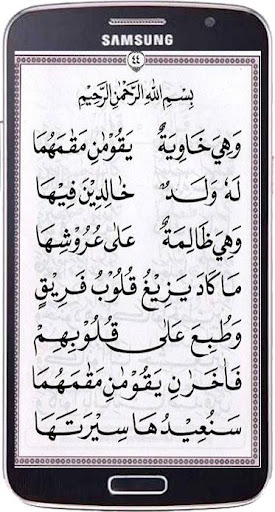 SAMSUNG
٤٤
بِسْمِ اللهِ الرَّحْمٰنِ الرَّحِيْمِ
وَهِيَ خَاوِيَةٌ يَقُوْمٰنِ مَقَمَهُمَا
لَهٗ وَلَدٌ خَالِدِيْنَ فِيْهَا
وَهِيَ ظَالِمَةٌ عَلٰى عُرُوْشِهَا
مَا كَادَ يَزِيْغُ قُلُوْبُ فَرِيْقٍ
وَطُبِعَ عَلٰى قُلُوْبِهِمْ
فَاٰخَرٰنِ يَقُوْمٰنِ مَقَمَهُمَا
سَنُعِيْدُهَا سِيْرَتَهَا